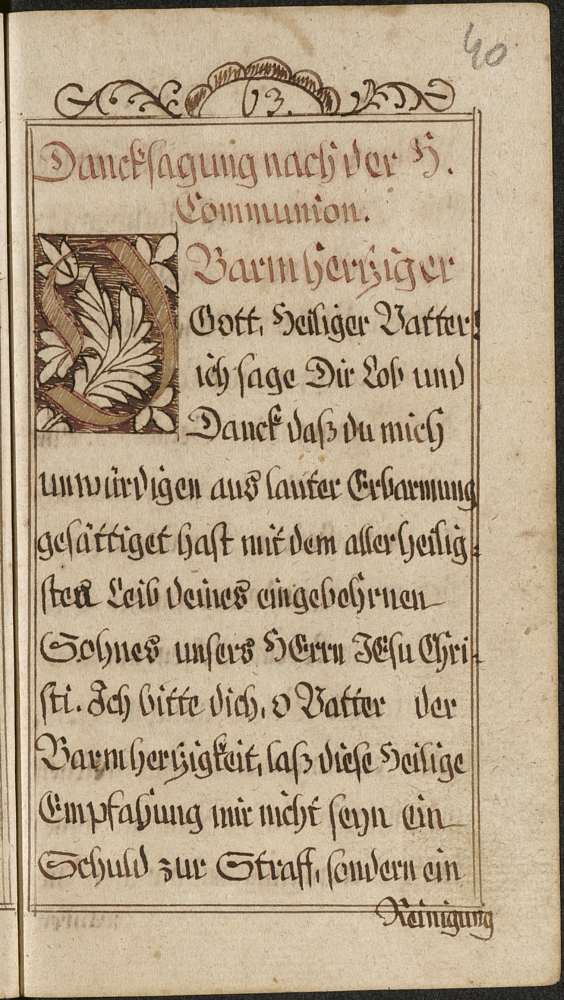 40
63.
Dancksagung nach der H.
Communion.
O Barmhertziger
Gott, Heiliger Vatter!
ich sage Dir Lob und
Danck daß du mich
unwürdigen aus lauter Erbarmung
gesättiget hast mit dem allerheilig-
sten Leib deines eingebohrnen
Sohnes unsers HErrn JEsu Chri-
sti. Ich bitte dich, o Vatter der
Barmhertzigkeit, laß diese Heilige
Empfahung mir nicht seyn ein
Schuld zur Straff, sondern ein
Reinigung